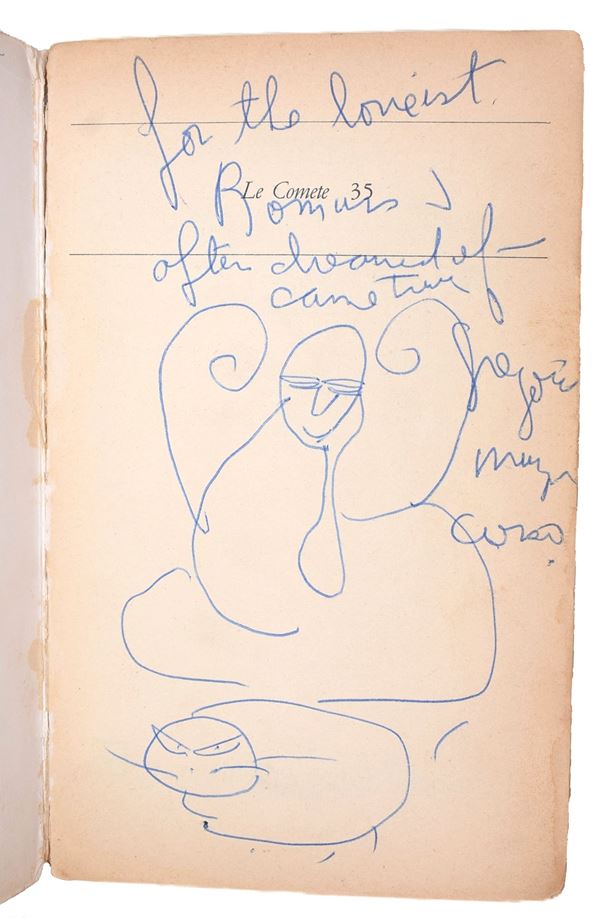 for the loveist.
Le Comete 35
Romans I
often dreamed of —
came true
Gregorio
Nunzio
Corso